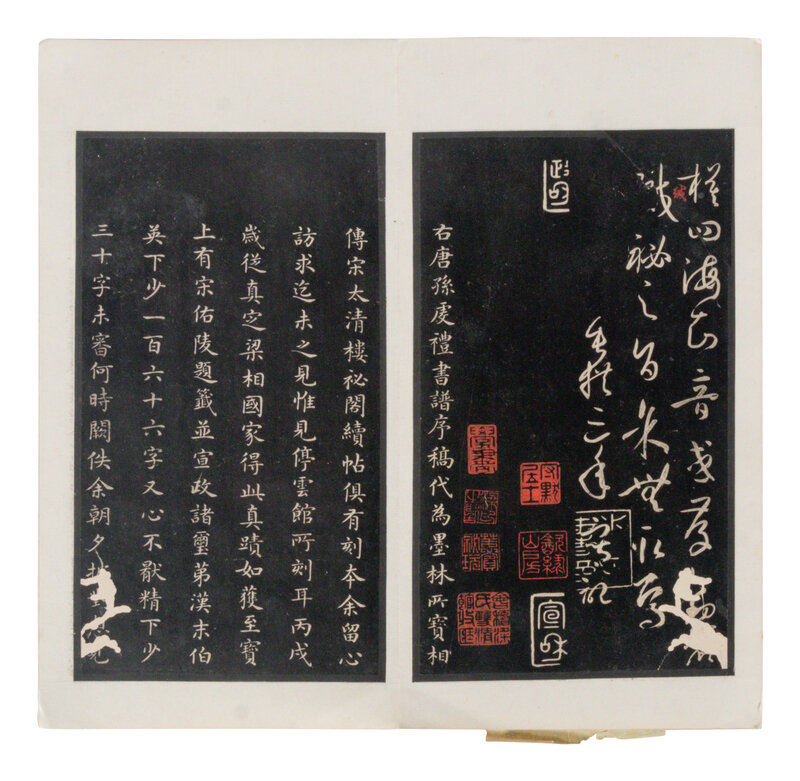 模四海知音或存
緘祕之旨余無取焉
垂拱三年寫記
政和
宣和
右唐孫虔禮書譜序稿代為墨林所寶相
傳宋太清樓祕閣續帖俱有刻本余留心
訪求迄未之見惟見停雲館所刻耳丙戌
歲從真定梁相國家得此真蹟如獲至寶
上有宋佑陵題籤並宣政諸璽弟漢末伯
英下少一百六十六字又心不厭精下少
三十字未審何時闕佚余朝夕